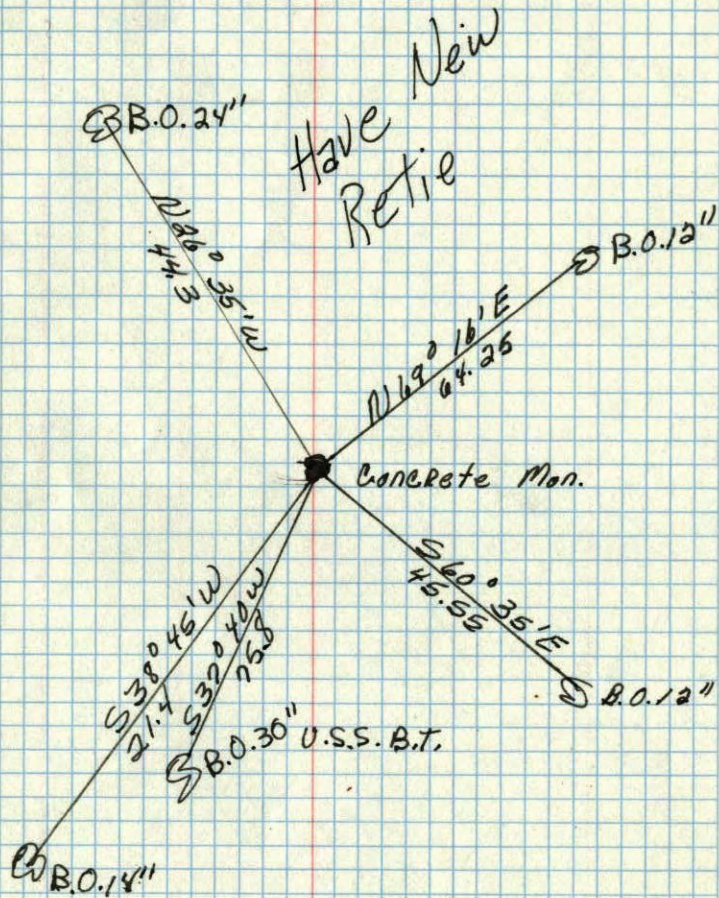 Have New
Retie
B.O. 24"
N 26° 35' W
44.3
B.O. 12"
N 69° 16' E
64.25
Concrete Mon.
S 60° 35' E
45.55
B.O. 12"
S 38° 45' W
21.4
S 32° 40 W
75.8
B.O. 30" U.S.S. B.T.
B.O. 14"